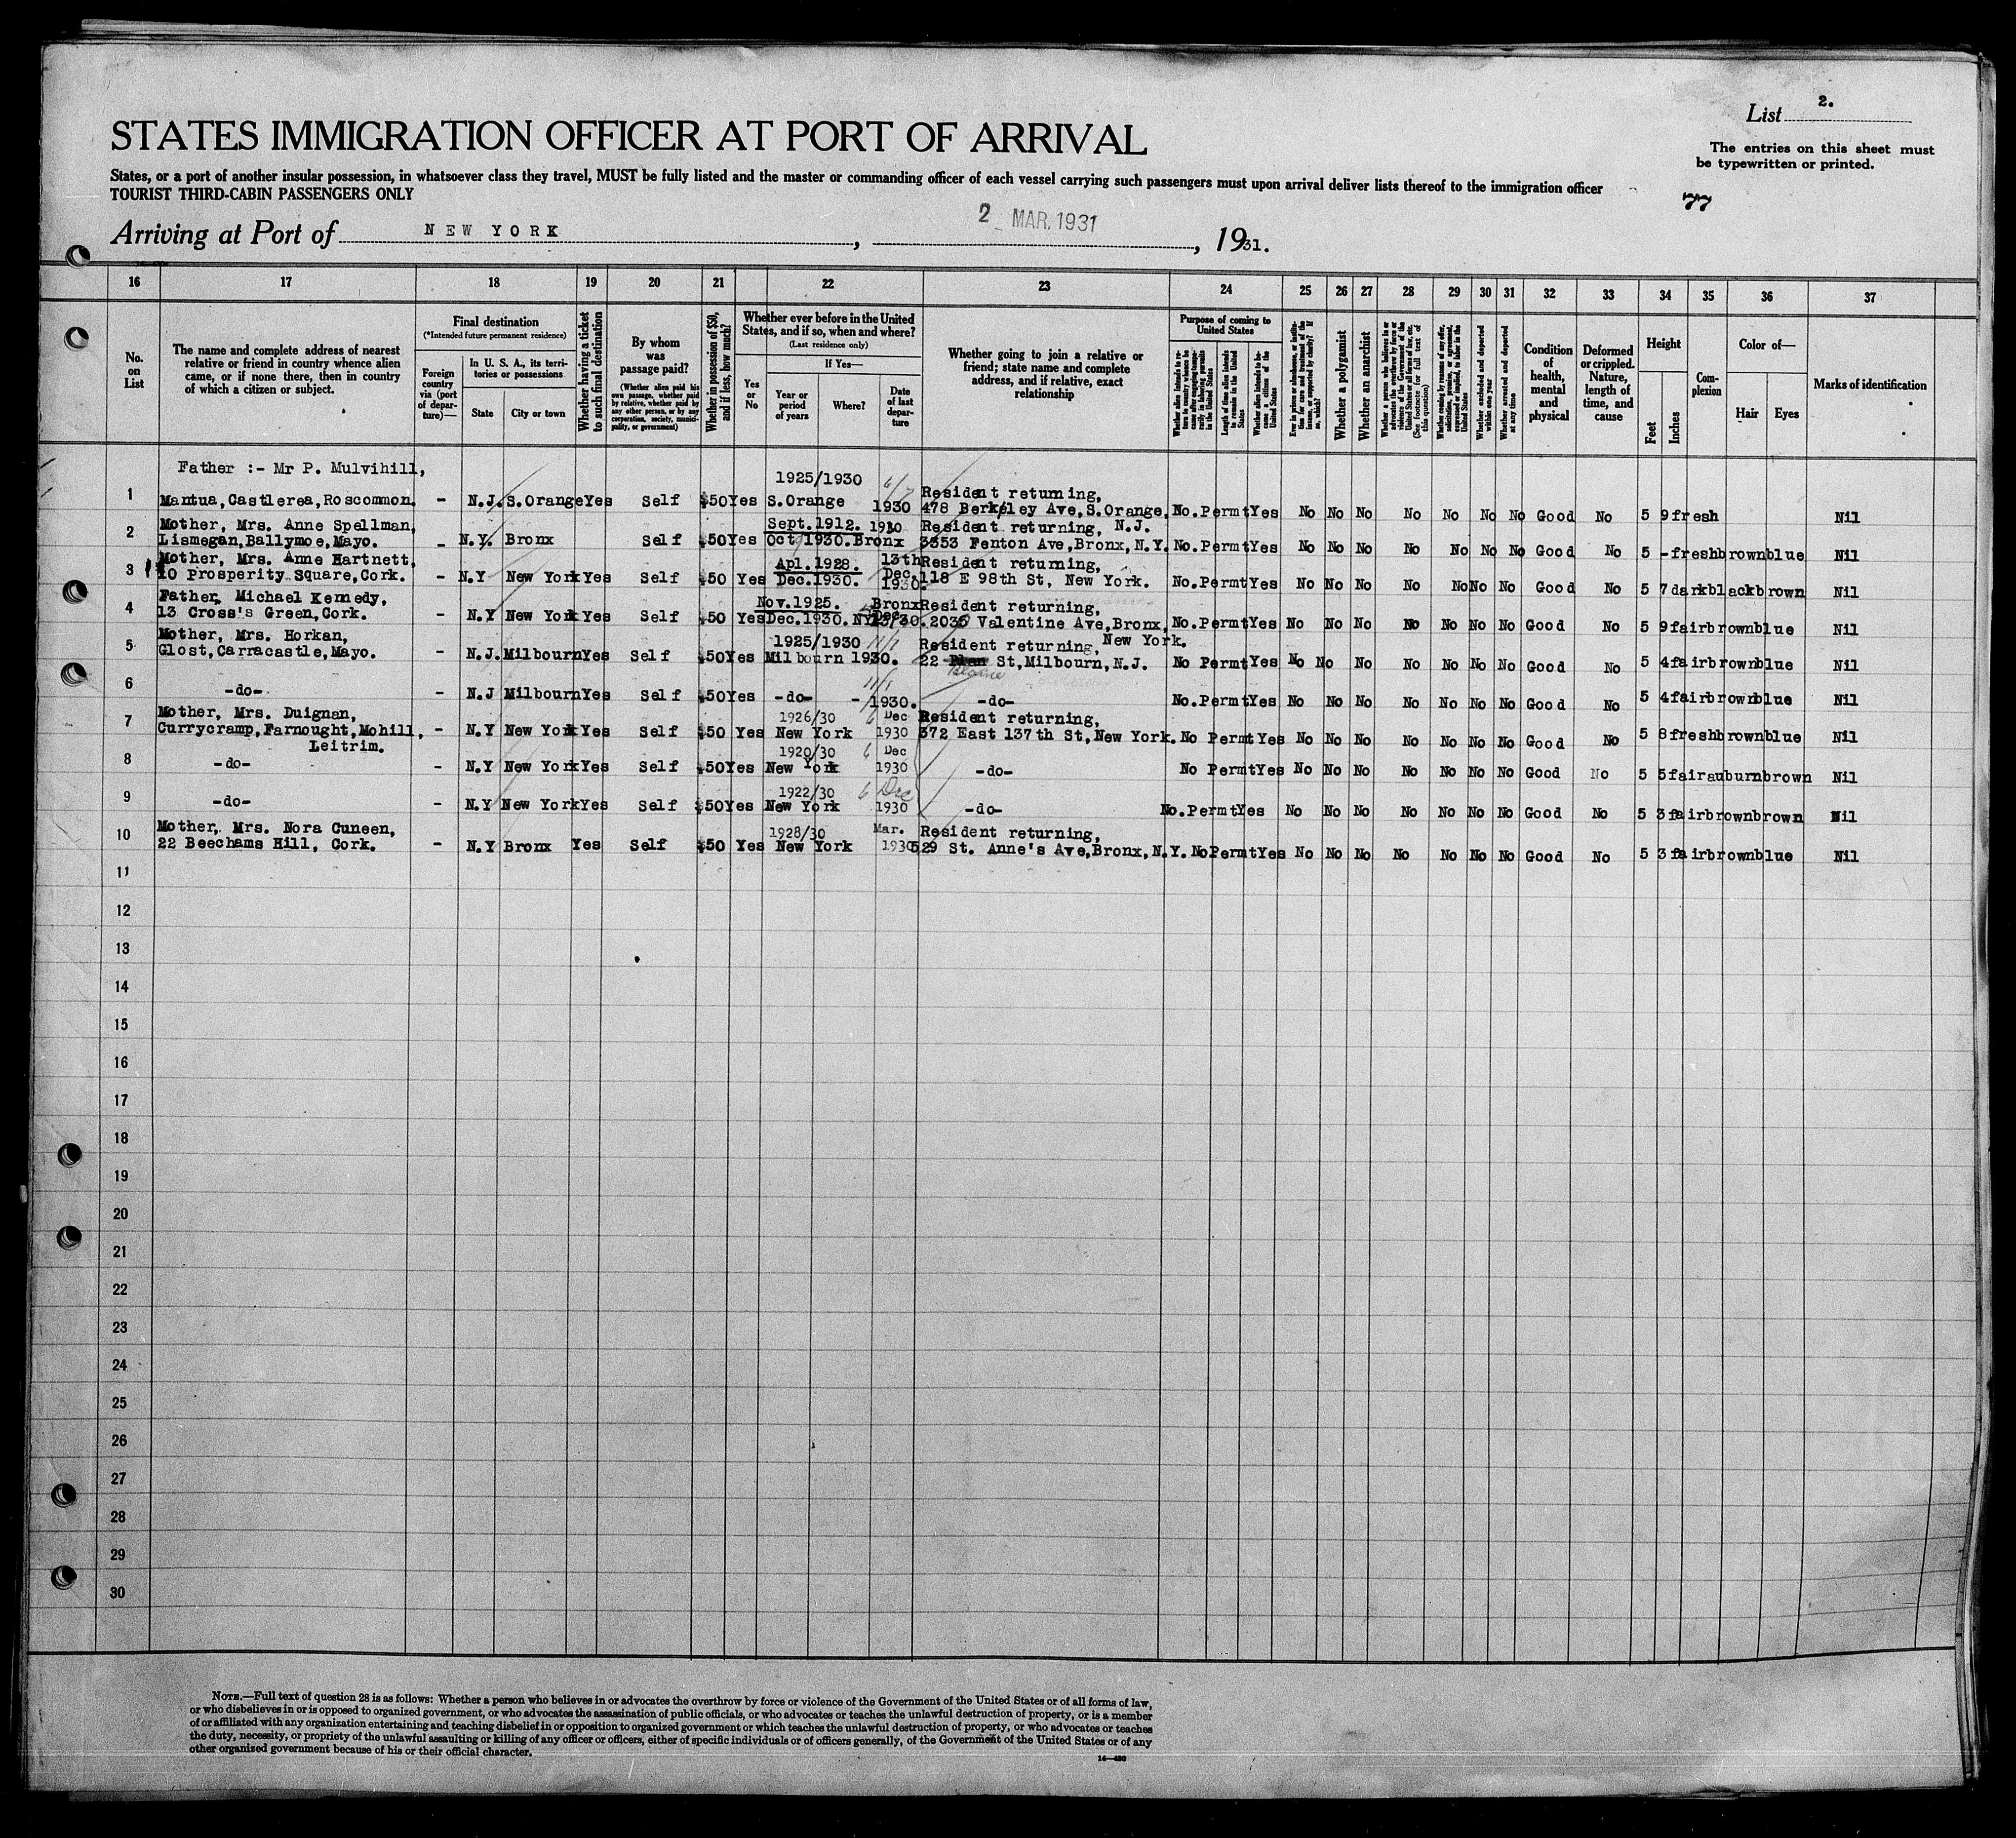 List 2.
STATES IMMIGRATION OFFICER AT PORT OF ARRIVAL
The entries on this sheet must
be typewritten or printed.
States, or a port of another insular possession, in whatsoever class they travel, MUST be fully listed and the master or commanding officer of each vessel carrying such passengers must upon arrival deliver lists thereof to the immigration officer
TOURIST THIRD-CABIN PASSENGERS ONLY
77
Arriving at Port of NEW YORK, 2 MAR. 1931, 1931.
16 17 18 19 20 21 22 23 24 25 26 27 28 29 30 31 32 33 34 35 36 37
No. on List
The name and complete address of nearest relative or friend in country whence alien came, or if none there, then in country of which a citizen or subject.
Final destination
(*Intended future permanent residence)
Foreign country via (port of departure)—
In U. S. A., its territories or possessions
State
City or town
Whether having a ticket to such final destination
By whom was passage paid?
(Whether alien paid his own passage, whether paid by relative, whether paid by any other person, or by any corporation, society, municipality, or government)
Whether in possession of $50, and if less, how much?
Whether ever before in the United States, and if so, when and where?
(Last residence only)
Yes or No
If Yes—
Year or period of years
Where?
Date of last departure
Whether going to join a relative or friend; state name and complete address, and if relative, exact relationship
Purpose of coming to United States
Whether alien intends to return to country whence he came after engaging temporarily in laboring pursuits in the United States
Length of time alien intends to remain in the United States
Whether alien intends to become a citizen of the United States
Ever in prison or almshouse, or institution for care and treatment of the insane, or supported by charity? If so, which?
Whether a polygamist
Whether an anarchist
Whether a person who believes in or advocates the overthrow by force or violence of the Government of the United States or all forms of law, etc. (See footnote for full text of this question)
Whether coming by reason of any offer, solicitation, promise, or agreement, expressed or implied, to labor in the United States
Whether excluded and deported within one year
Whether arrested and deported at any time
Condition of health, mental and physical
Deformed or crippled. Nature, length of time, and cause
Height
Feet
Inches
Complexion
Color of—
Hair
Eyes
Marks of identification
Father :- Mr P. Mulvihill, 1925/1930 Resident returning,
1 Mantua,Castlerea,Roscommon. - N.J. S.Orange Yes Self $50 Yes S.Orange 1930 478 Berkeley Ave,S.Orange, No. Permt Yes No No No No No No No Good No 5 9 fresh Nil
Mother, Mrs. Anne Spellman, Sept.1912. 1930 Resident returning, N.J.
2 Lismegan,Ballymoe,Mayo. - N.Y. Bronx Self $50 Yes Oct 1930.Bronx 3353 Fenton Ave,Bronx,N.Y. No. Permt Yes No No No No No No No Good No 5 - fresh brown blue Nil
Mother, Mrs. Anne Hartnett, Apl.1928. 13th Resident returning,
3 10 Prosperity Square,Cork. - N.Y New York Yes Self $50 Yes Dec.1930. Dec. 1930. 118 E 98th St, New York. No. Permt Yes No No No No No No No Good No 5 7 dark black brown Nil
Father, Michael Kennedy, Nov.1925. Bronx Resident returning,
4 13 Cross's Green,Cork. - N.Y New York Yes Self $50 Yes Dec.1930. 2035 Valentine Ave,Bronx, No. Permt Yes No No No No No No No Good No 5 9 fair brown blue Nil
Mother, Mrs. Horkan, 1925/1930 11/1 Resident returning, New York.
5 Glost,Carracastle,Mayo. - N.J. Milbourn Yes Self $50 Yes Milbourn 1930. 22 St,Milbourn,N.J. No Permt Yes No No No No No No No Good No 5 4 fair brown blue Nil
6 -do- - N.J Milbourn Yes Self $50 Yes -do- - 11/1 1930. -do- No. Permt Yes No No No No No No No Good No 5 4 fair brown blue Nil
Mother, Mrs. Duignan, 1926/30 6 Dec Resident returning,
7 Currycramp,Farnought,Mohill, - N.Y New York Yes Self $50 Yes New York 1930 372 East 137th St,New York. No Permt Yes No No No No No No No Good No 5 8 fresh brown blue Nil
Leitrim. 1920/30 6 Dec
8 -do- - N.Y New York Yes Self $50 Yes New York 1930 -do- No Permt Yes No No No No No No No Good No 5 5 fair auburn brown Nil
1922/30 6 Dec
9 -do- - N.Y New York Yes Self $50 Yes New York 1930 -do- No. Permt Yes No No No No No No No Good No 5 3 fair brown brown Nil
Mother, Mrs. Nora Cuneen, 1928/30 Mar. Resident returning,
10 22 Beechams Hill, Cork. - N.Y Bronx Yes Self $50 Yes New York 1930 529 St. Anne's Ave,Bronx,N.Y. No Permt Yes No No No No No No No Good No 5 3 fair brown blue Nil
11
12
13
14
15
16
17
18
19
20
21
22
23
24
25
26
27
28
29
30
NOTE.—Full text of question 28 is as follows: Whether a person who believes in or advocates the overthrow by force or violence of the Government of the United States or of all forms of law,
or who disbelieves in or is opposed to organized government, or who advocates the assassination of public officials, or who advocates or teaches the unlawful destruction of property, or is a member
of or affiliated with any organization entertaining and teaching disbelief in or opposition to organized government or which teaches the unlawful destruction of property, or who advocates or teaches
the duty, necessity, or propriety of the unlawful assaulting or killing of any officer or officers, either of specific individuals or of officers generally, of the Government of the United States or of any
other organized government because of his or their official character.
14—430